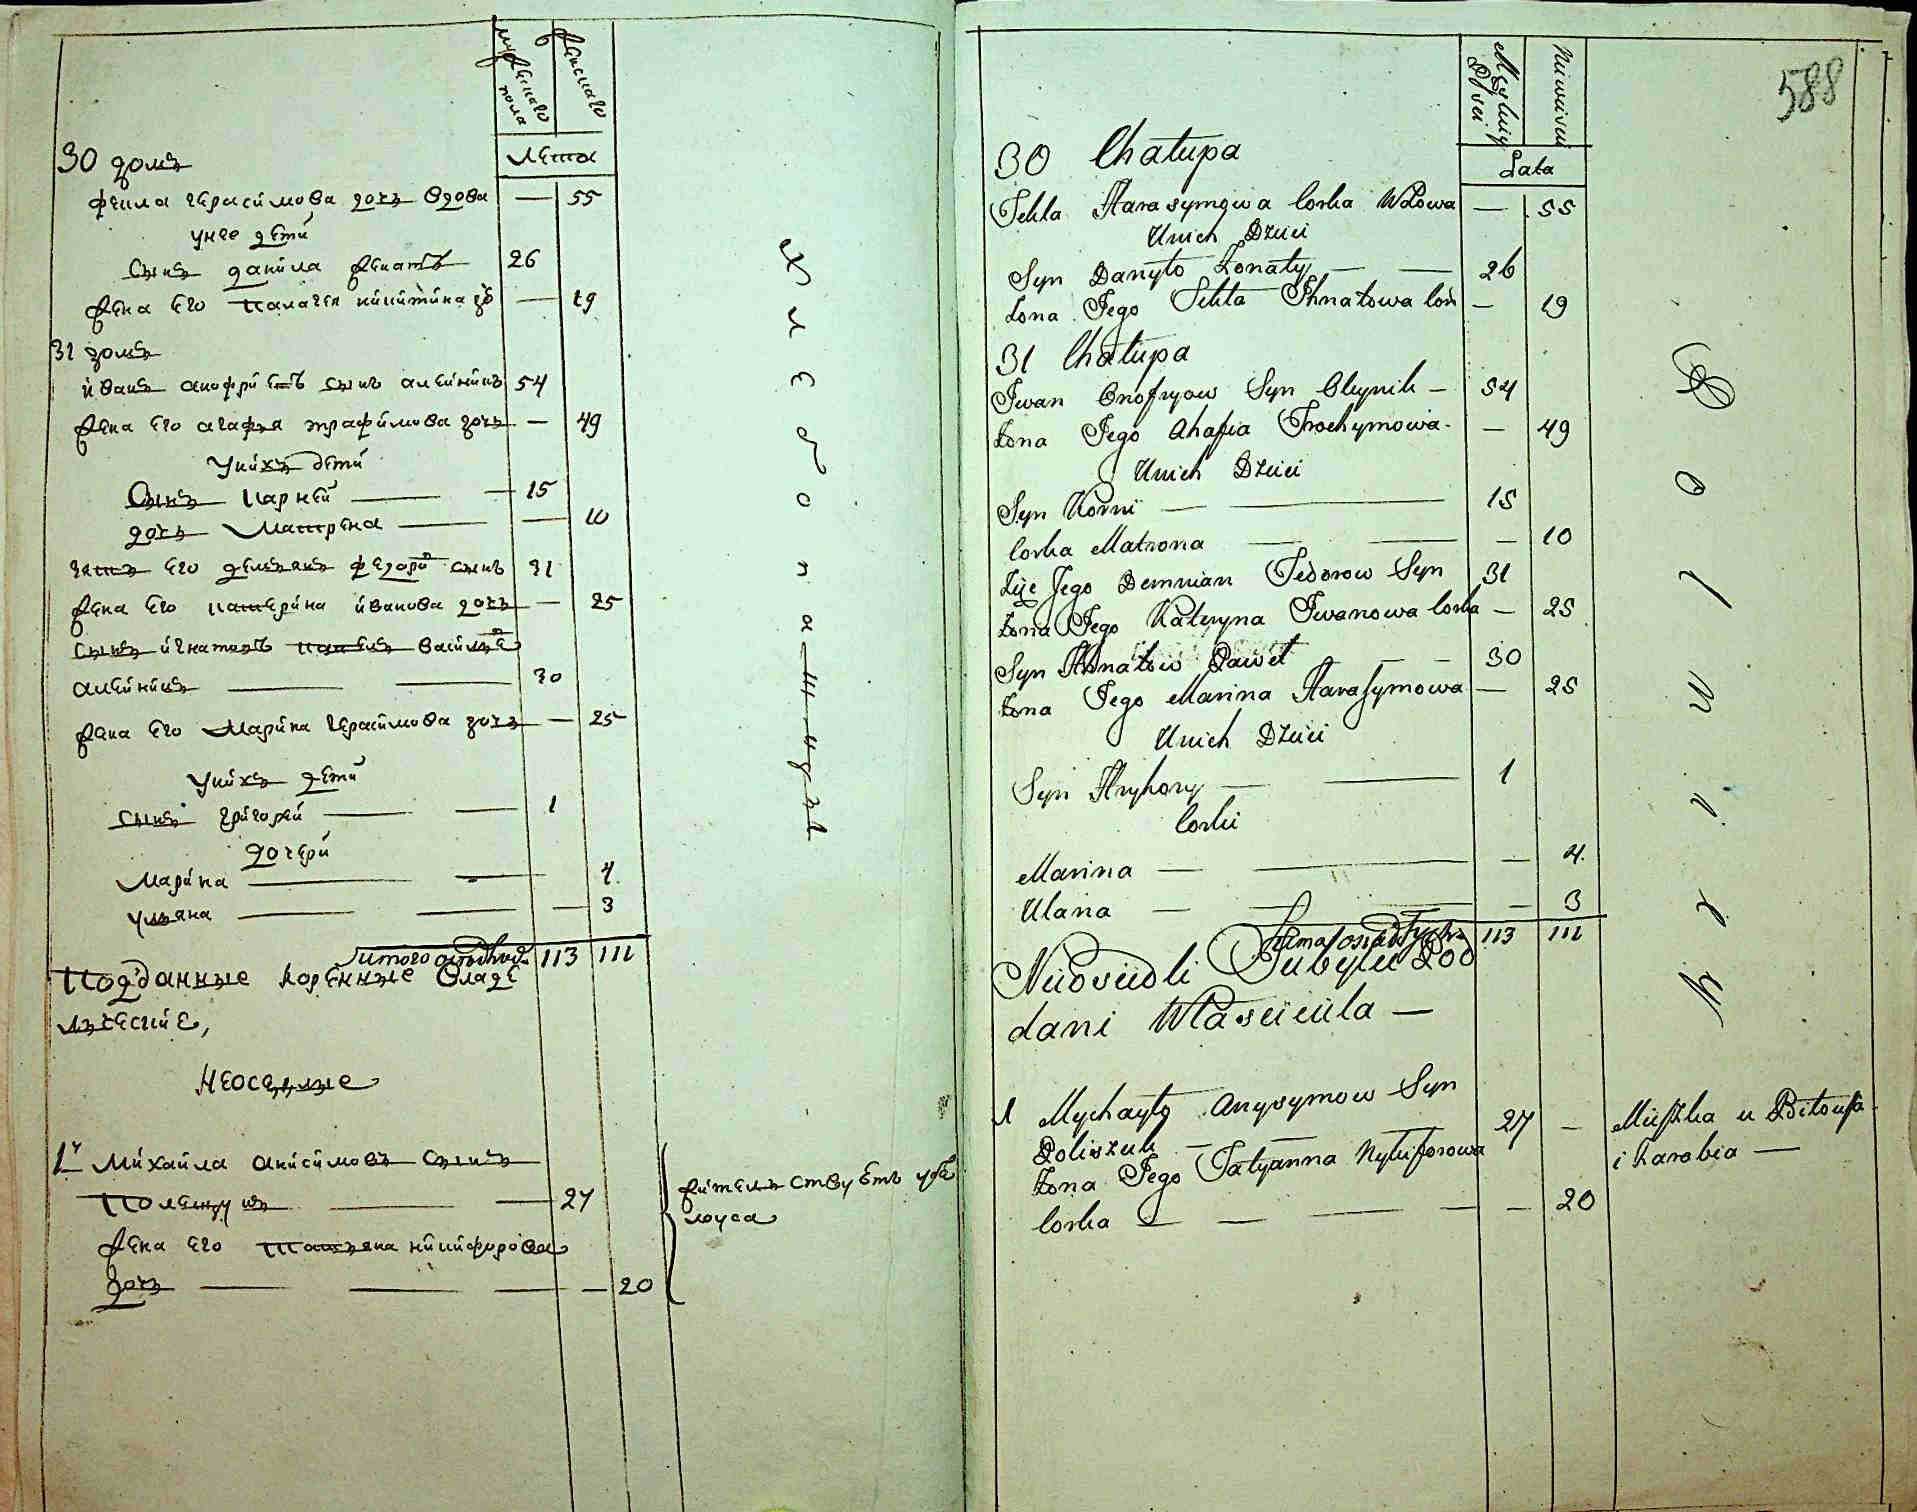 мужескаго пола
женскаго
Лета
30 домъ
Фекла Герасимова дочь вдова — 55
у нее дети
сынъ данила женатъ 26
жена его палагея никитина до — 19
31 домъ
иванъ анофриевъ сынъ алейникъ 54
жена его агафья трафимова дочь — 49
У нихъ дети
Сынъ карней — — 15
дочь Матрена — — 10
зять его демьянъ федоровъ сынъ 31
жена его катерина иванова дочь — 25
сынъ игнатовъ павелъ
алейникъ — — 30
жена его Марина герасимова дочь — 25
У нихъ дети
сынъ григорей — — 1
дочери
Марина — — 4
ульяна — — — 3
итого 113 111
Подданные коренные владе
льческие,
Неоседлые
1й Михайла анисимовъ сынъ
Полещукъ — — 27
жена его Татьяна никифорова
дочь — — — — 20
жительствуетъ
Хлебопашцы
588
Męzkiey Płci
Niewieści
Lata
30 Chałupa
Tekla Harasymowa Corka Wdowa — 55
U nich Dzieci
Syn Danyło Żonaty — — 26
Żona Jego Tekla Ihnatowa Cor — 19
31 Chałupa
Iwan Onofryow Syn Oleynik — 54
Żona Jego Ahafia Trochymowa — 49
U nich Dzieci
Syn Kornii — — 15
Corka Matrona — — — 10
Zięć Jego Demnian Fedorow Syn 31
Żona Jego Kateryna Iwanowa Corka — 25
Syn Ihnatow Paweł — — 30
Żona Jego Marina Harasymowa — 25
U nich Dzieci
Syn Hryhory — — 1
Corki
Marina — — — 4
Ulana — — — 3
113 111
Nieosiedli Pod
dani Właściciela —
1 Mychayło Anysymow Syn
Poliszuk — — 27 —
Żona Jego Tatyanna Nykiforowa
Corka — — — — 20
Mieszka u
i Zarabia —
Rolnicy